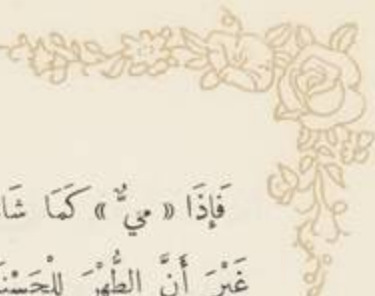 فَإِذَا « مِيٌّ » كَمَا شَا
غَيْرَ أَنَّ الطُّهْرَ لِلْحَسْنَ